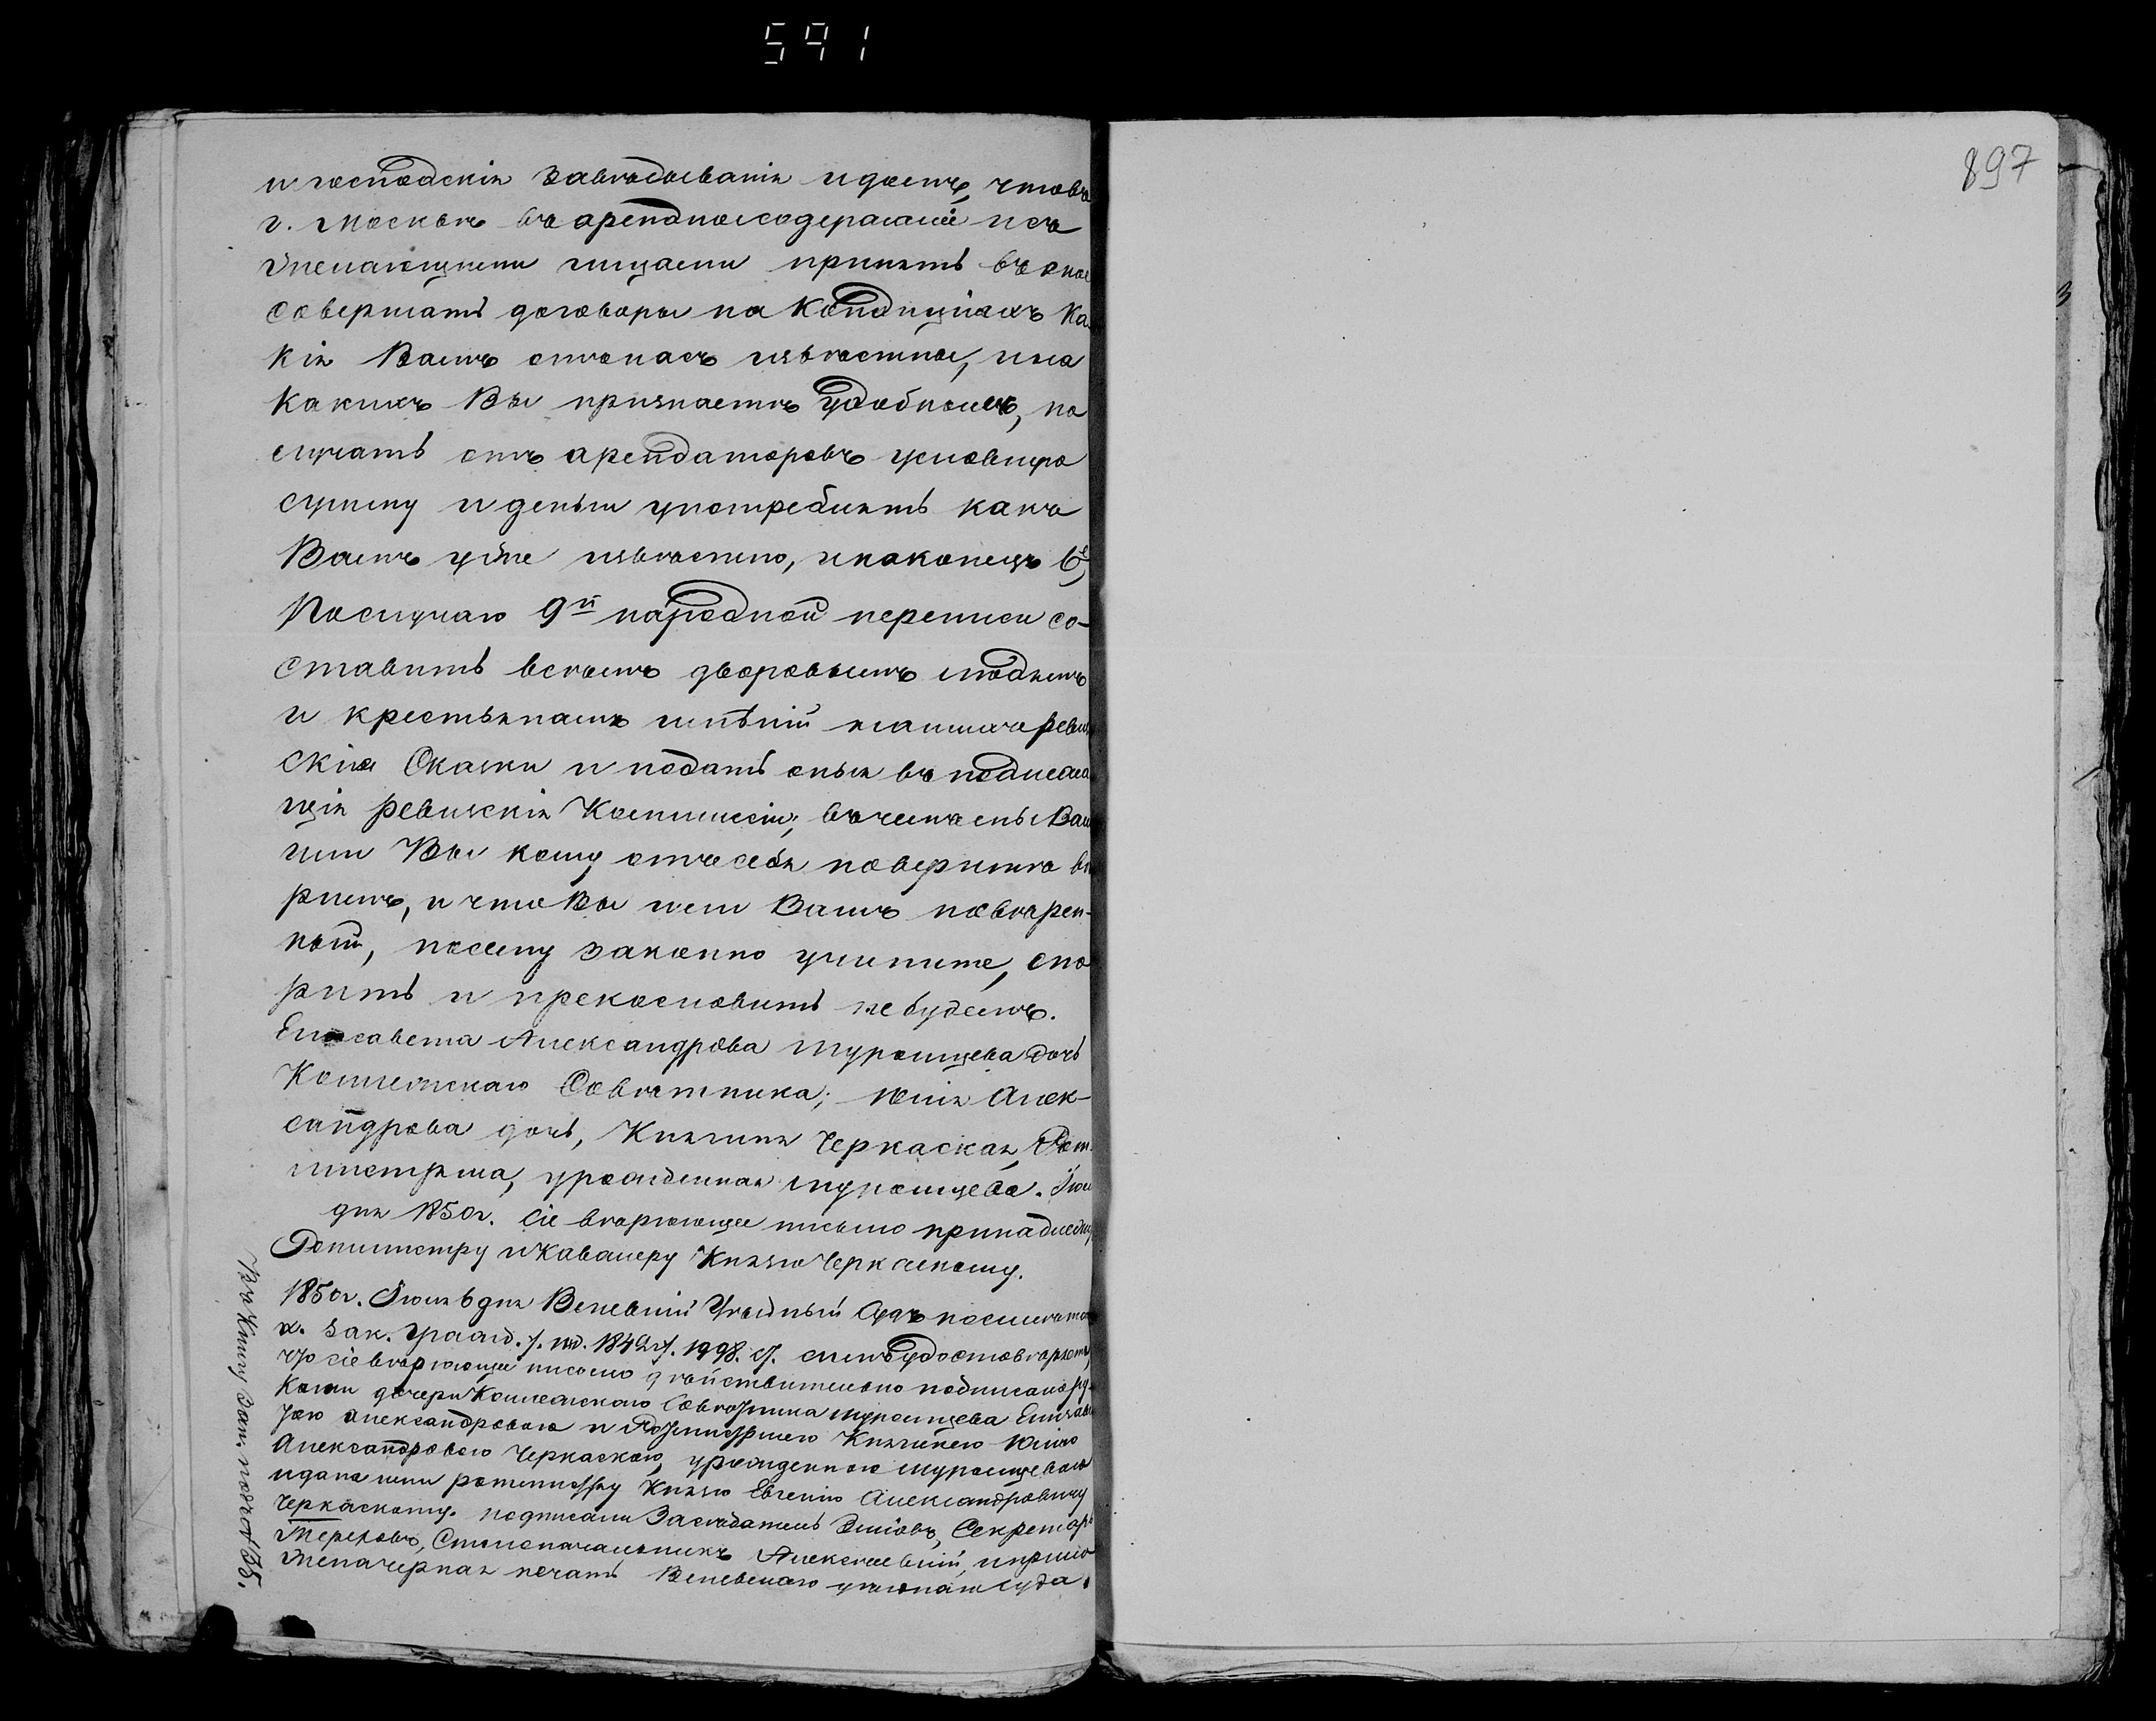 591
897
и господскія заведыванія и домъ, что въ
г. Москвѣ въ арендное содержаніе и съ
желающими лицами принять въ оное
совершать договоры на кондиціяхъ ка-
кія Вамъ отъ насъ извѣстны, и на
какихъ Вы признаете удобнымъ, по
лучать отъ арендаторовъ условную
сумму и деньги употреблять какъ
Вамъ уже извѣстно, и наконецъ 6е,
По случаю 9й народной переписи со-
ставить всѣмъ дворовымъ людямъ
и крестьянамъ имѣній нашихъ реви
скія Сказки и подать оныя въ подлежа
щія ревизскія Коммисіи; въ чемъ мы Вам
или Вы кому отъ себя повѣрите вѣ
римъ, и что Вы или Вашъ повѣрен-
ный, по сему законно учините, спо
рить и прекословить не будемъ.
Елисавета Александрова Муромцева дочь
Коллежскаго Совѣтника; Юлія Алек-
сандрова дочь, Княгиня Черкаская, Рот
мистрша, урожденная Муромцева. Іюля
дня 1850г. Сіе вѣрющее письмо принадлежи
Ротмистру и Кавалеру Князю Черкаскому.
1850г. Іюля 6 дня Веневскій Уѣздный Судъ по силѣ
х. Зак. Гражд. изд. 1842 1998. ст. симъ удостовѣряетъ,
что сіе вѣрющее письмо дѣйствительно подписано ру-
ками дочери Коллежскаго Совѣтника Муромцева Елисаве
тою Александровою и Ротмистршею Княгинею Юліею
Александровою Черкаскою, урожденною Муромцевою
и дано ими ротмистру Князю Евгенію Александровичу
Черкаскому. подписали Засѣдатель Секретарь
Тереховъ, Столоначальникъ Алексѣевскій, и прило
жена черная печать Веневскаго уѣзднаго суда.
Въ Книгу Зап. подъ № 35.